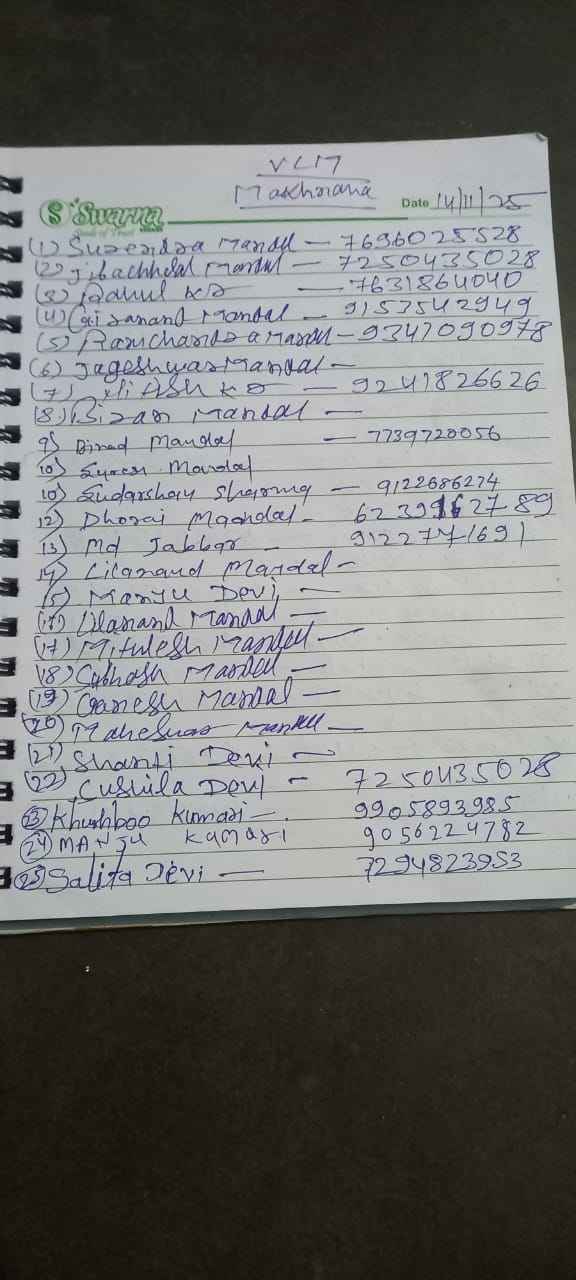 VLM
Makhnana
S Swarna
Date 14/11/25
(1) Surendra Mandal — 7696025528
(2) Jibachhelal Mandal — 7250435028
(3) Rahul Kr — 7631864040
(4) Gaisanand Mandal — 9153542949
(5) Ramchandra Mandal — 9347090978
(6) Jageshwar Mandal —
(7) Kr — 9241826626
(8) Mandal —
9) Binod Mandal — 7739720056
10) Suresh Mandal
10) Sudarshan Sharma — 9122686274
12) Dhorai Mandal - 6239162789
13) Md Jabbar — 9122771691
14) Lilanand Mandal —
15) Manju Devi —
(16) Lilanand Mandal —
(17) Mithlesh Mandal —
(18) Subhash Mandal —
(19) Ganesh Mandal —
(20) Maheswar Mandal —
(21) Shanti Devi —
(22) Sushila Devi — 7250435028
(23) Khushboo Kumari — 9905893985
(24) MANJU Kumari 9056224782
(25) Salita Devi — 7294823953